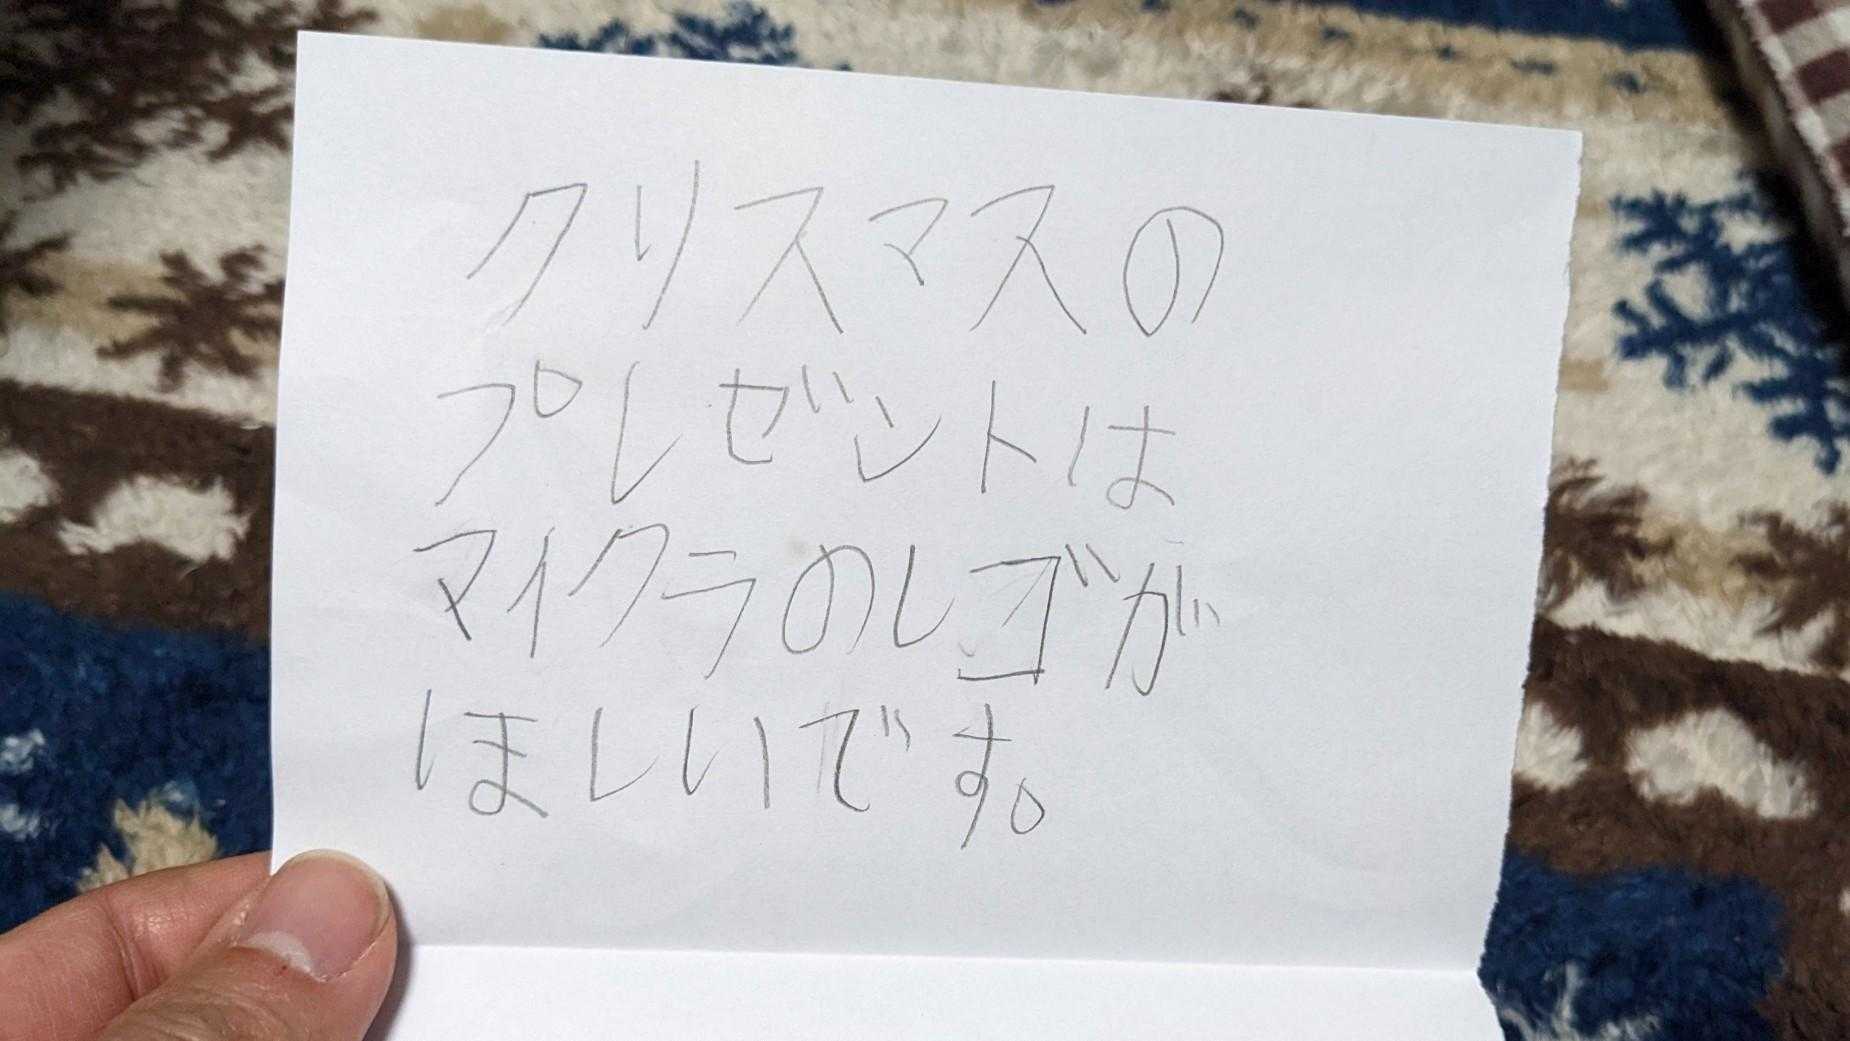 クリスマスの
プレゼントは
マイクラのレゴが
ほしいです。